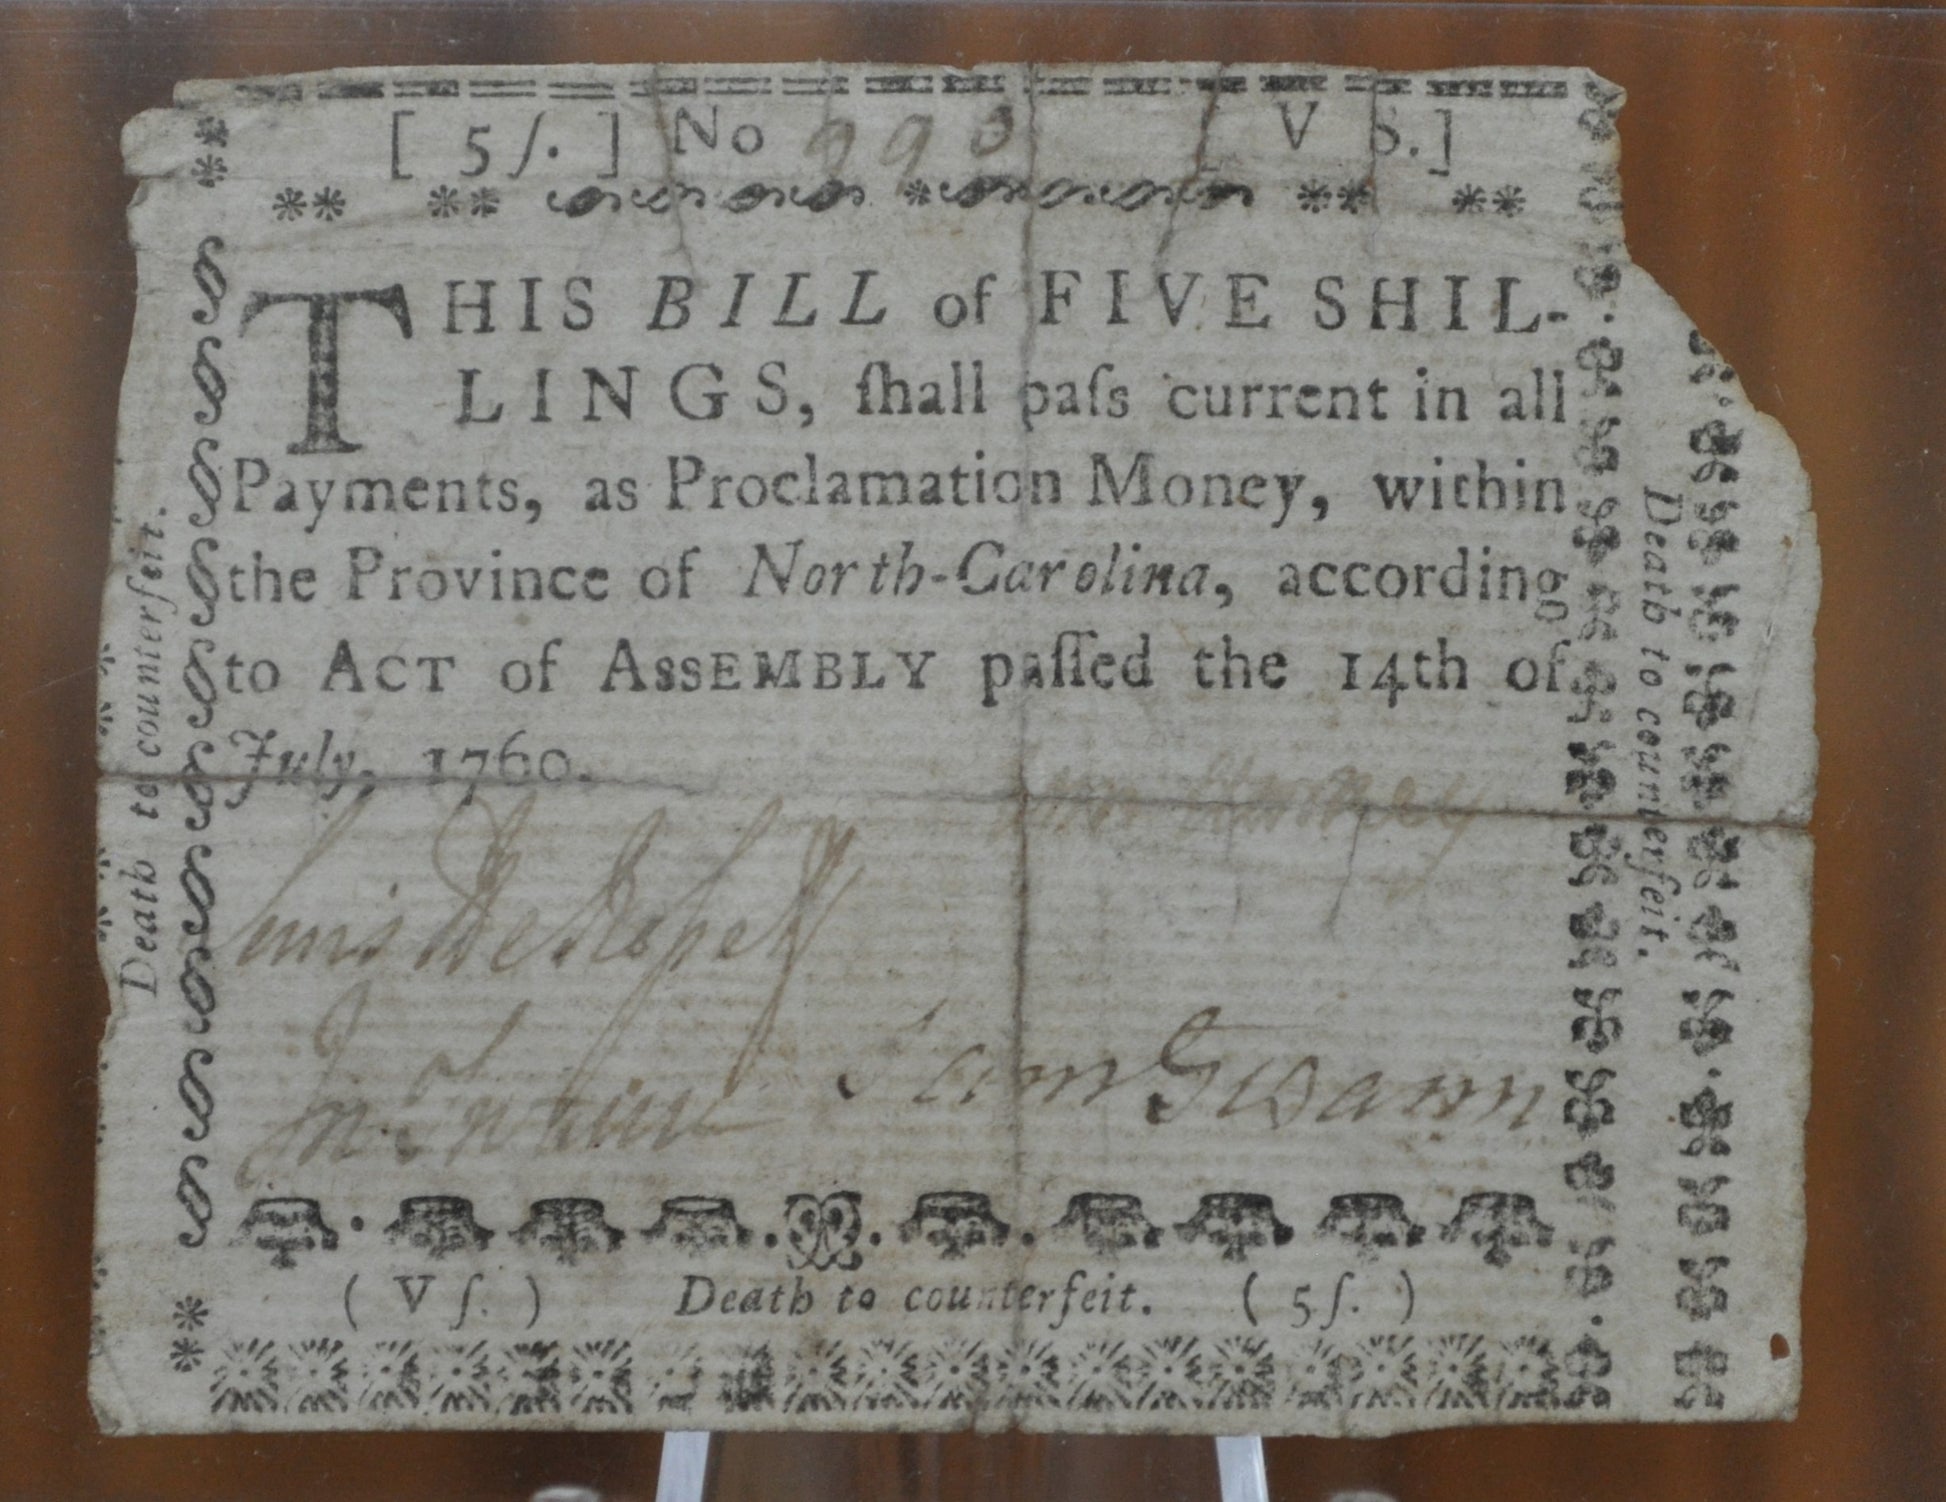 [ 5 ſ. ] No 993 [ V S. ]
THIS BILL of FIVE SHIL-
LINGS, ſhall paſs current in all
Payments, as Proclamation Money, within
the Province of North-Carolina, according
to ACT of ASSEMBLY paſſed the 14th of
July, 1760.
Lewis DeRosset
Jn. Swann Sam Swann
( V ſ. ) Death to counterfeit. ( 5 ſ. )
Death to counterfeit.
Death to counterfeit.